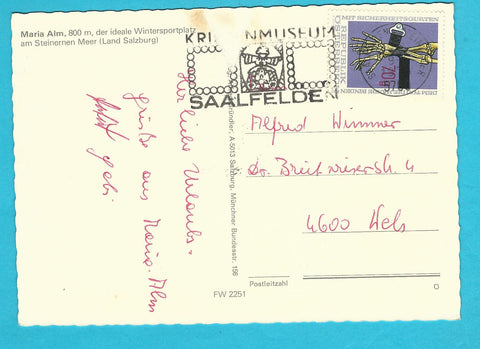 Maria Alm, 800 m, der ideale Wintersportplatz
am Steinernen Meer (Land Salzburg)
KRIPPENMUSEUM
SAALFELDEN
MIT SICHERHEITSGURTEN
REPUBLIK
ÖSTERREICH
Herzliche Urlaubs-
grüße aus Maria-Alm
Gabi
A-5013 Salzburg, Münchner Bundesstr. 156
Alfred Wimmer
Dr. Breitwieserstr. 4
4600 Wels
Postleitzahl
FW 2251